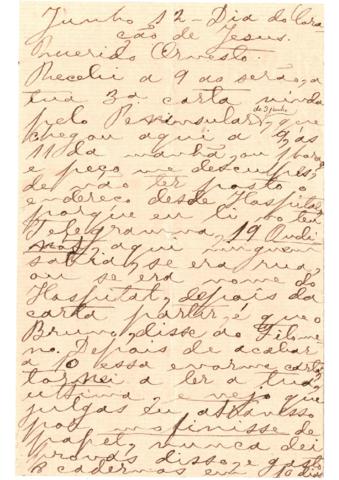 Junho 12 - Dia do Cora
ção de Jesus.
Querido Ernesto.
Recebi a 9 ao serão, a
tua 3a carta vinda
de 3 junho
pelo Peninsular, que
chegou aqui a 9, ás
11 da manhã,
e peço me desculpes,
de não ter posto o
endereço desde Hospital
porque eu li o teu
Telegramma, 19
aqui ninguem
sabia, se era rua,
ou se era nome do
Hospital, depois da
carta partir, é que o
Bruno, disse do
Depois de acabar
a essa enorme carta,
tornei a ler a tua,
ultima, e vejo que
julgas eu
por
papel, nunca dei
provas disso, e gasto
cadernos em